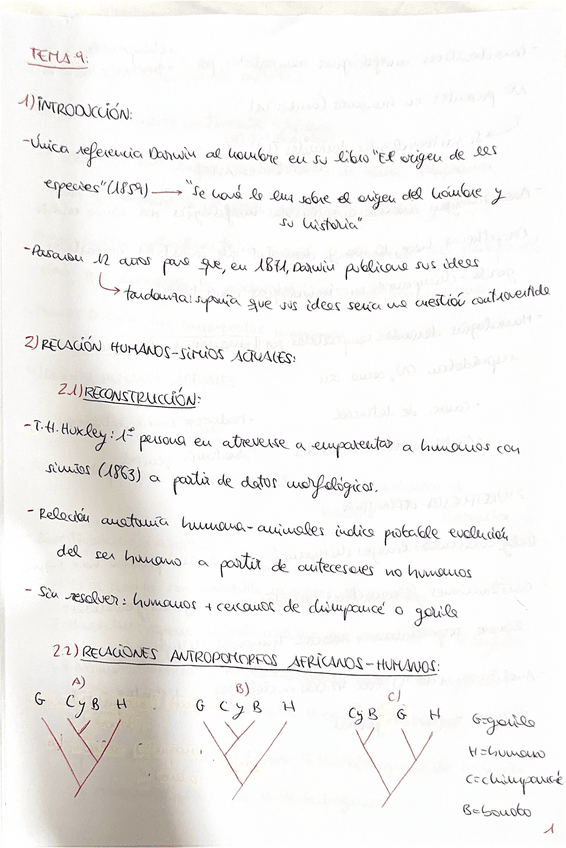 TEMA 9:
1) INTRODUCCIÓN:
-Única referencia Darwin al hombre en su libro "El origen de las
especies" (1859) → "Se hará la luz sobre el origen del hombre y
su historia"
-Pasaron 12 años para que, en 1871, Darwin publicara sus ideas
↳ tardanza: suponía que sus ideas sería una cuestión controvertida
2) RELACIÓN HUMANOS-SIMIOS ACTUALES:
2.1) RECONSTRUCCIÓN:
-T.H. Huxley: 1ª persona en atreverse a emparentar a humanos con
simios (1863) a partir de datos morfológicos.
- Relación anatomía humana-animales indica probable evolución
del ser humano a partir de antecesores no humanos
- Sin resolver: humanos + cercanos de chimpancé o gorila
2.2) RELACIONES ANTROPOMORFOS AFRICANOS-HUMANOS:
A) B) C)
G C y B H G C y B H C y B G H
G=gorila
H=humano
C=chimpancé
B=bonobo
1